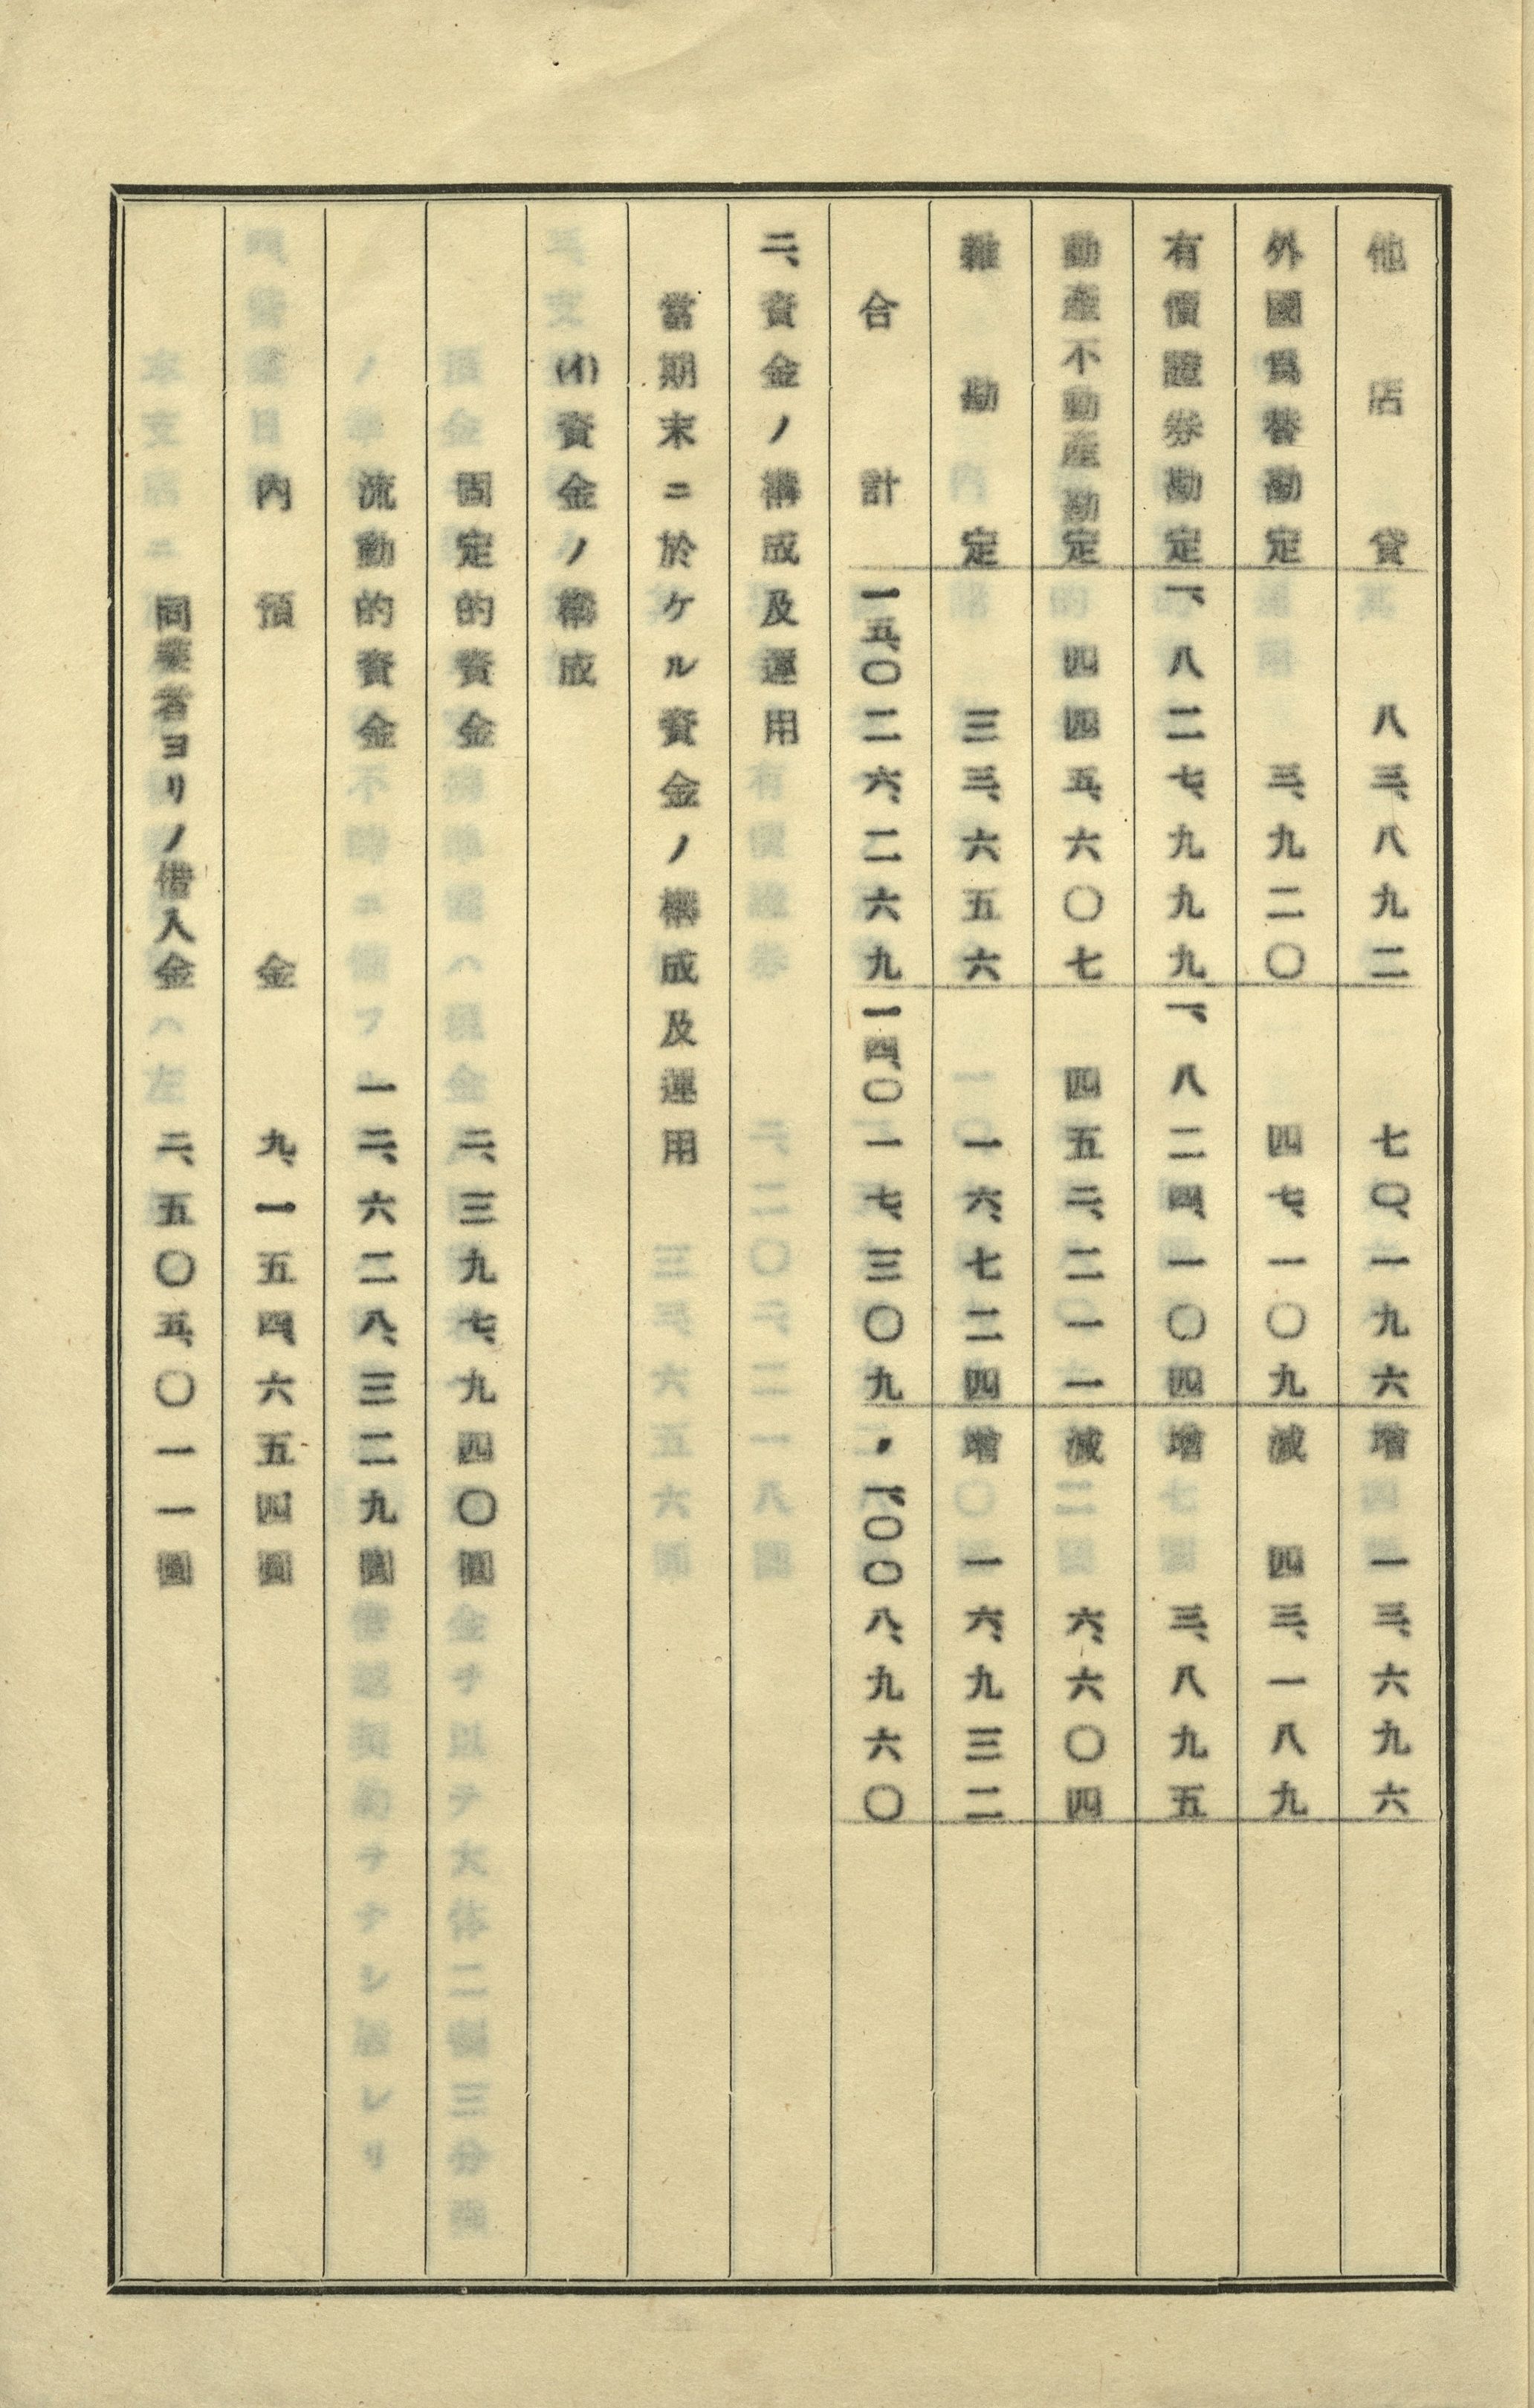 他店貸 八三、八九二 七〇、一九六 增 一三、六九六
外國爲替勘定 三、九二〇 四七、一〇九 減 四三、一八九
有價證券勘定 一、八二七、九九九 一、八二四、一〇四 增 三、八九五
動產不動產勘定 四四五、六〇七 四五二、二一一 減 六、六〇四
雜勘定 三三、六五六 一六、七二四 增 一六、九三二
合計 一五、〇二六、二六九 一四、〇一七、三〇九 〃 一、〇〇八、九六〇
二、資金ノ構成及運用
當期末ニ於ケル資金ノ構成及運用
(イ)資金ノ構成
固定的資金 二、三九七、九四〇圓
流動的資金 一二、六二八、三二九圓
內 預金 九、一五四、六五四圓
同業者ヨリノ借入金 二、五〇五、〇一一圓